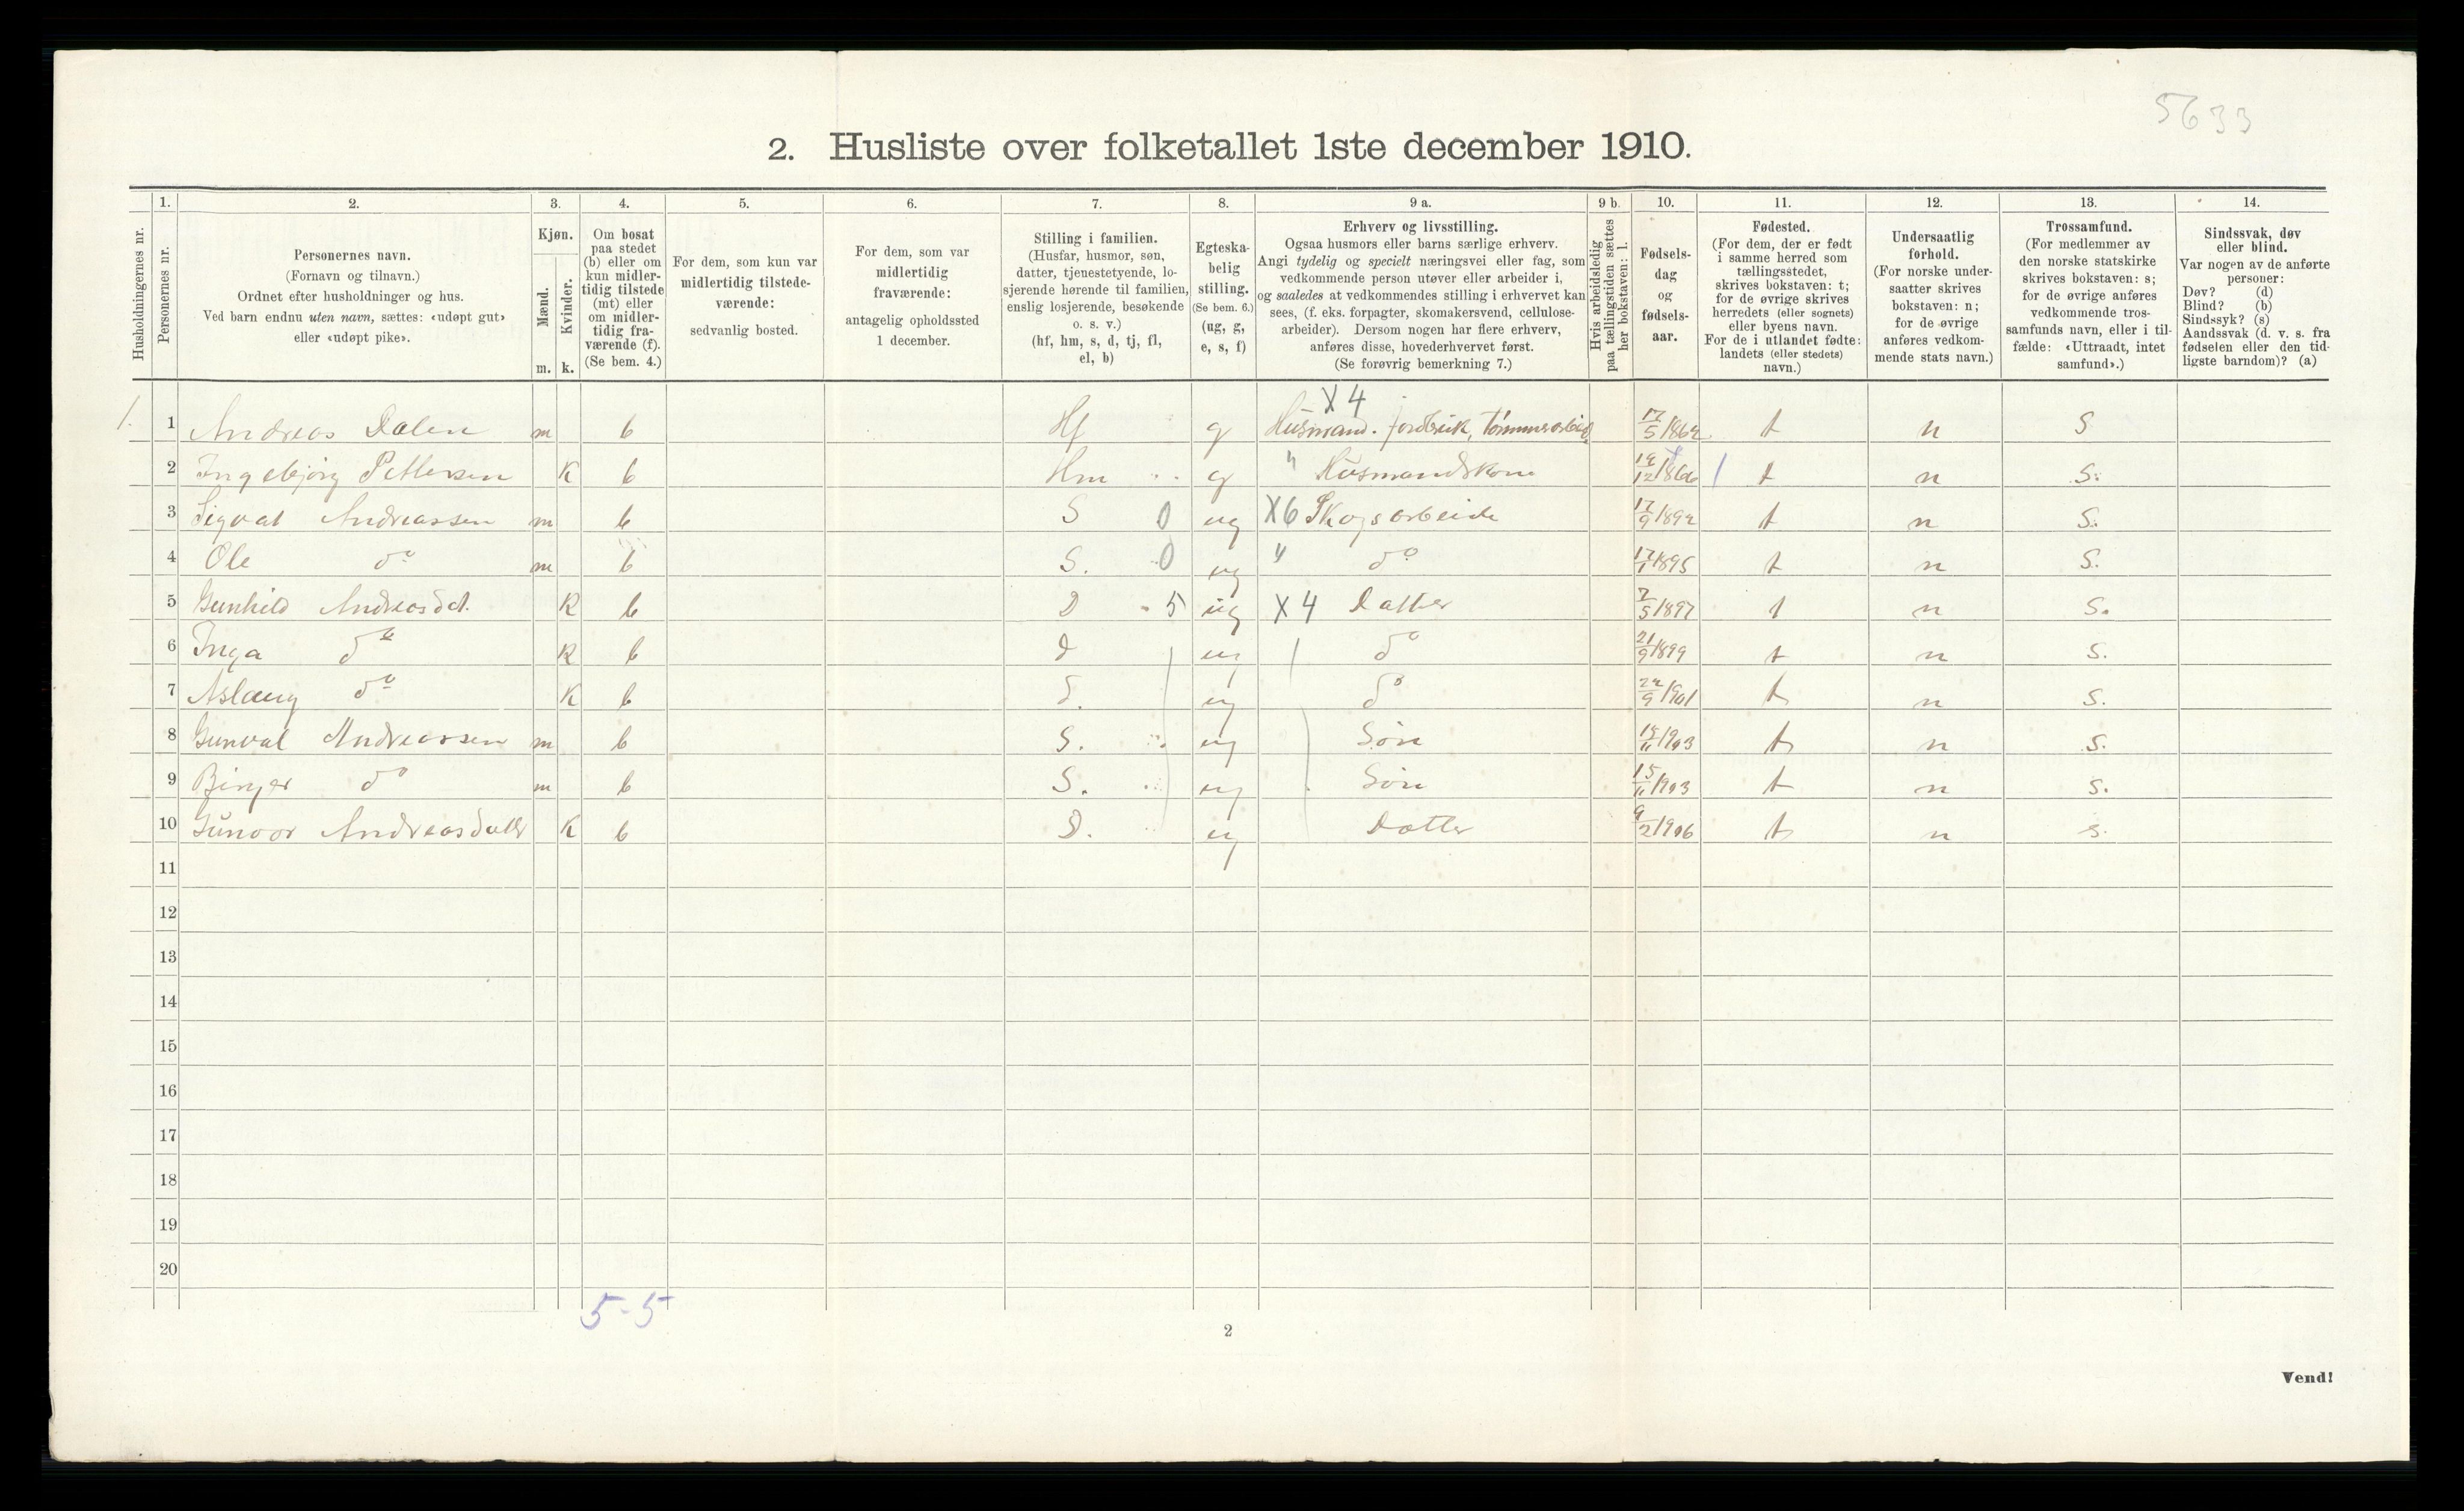 5633
2. Husliste over folketallet 1ste december 1910.
Husholdningernes nr.
1.
Personernes nr.
2.
Personernes navn.
(Fornavn og tilnavn.)
Ordnet efter husholdninger og hus.
Ved barn endnu uten navn, sættes: «udøpt gut»
eller «udøpt pike».
3.
Kjøn.
Mænd.
Kvinder.
m. k.
4.
Om bosat
paa stedet
(b) eller om
kun midler-
tidig tilstede
(mt) eller
om midler-
tidig fra-
værende (f).
(Se bem. 4.)
5.
For dem, som kun var
midlertidig tilstede-
værende:
sedvanlig bosted.
6.
For dem, som var
midlertidig
fraværende:
antagelig opholdssted
1 december.
7.
Stilling i familien.
(Husfar, husmor, søn,
datter, tjenestetyende, lo-
sjerende hørende til familien,
enslig losjerende, besøkende
o. s. v.)
(hf, hm, s, d, tj, fl,
el, b)
8.
Egteska-
belig
stilling.
(Se bem. 6.)
(ug, g,
e, s, f)
9 a.
Erhverv og livsstilling.
Ogsaa husmors eller barns særlige erhverv.
Angi tydelig og specielt næringsvei eller fag, som
vedkommende person utøver eller arbeider i,
og saaledes at vedkommendes stilling i erhvervet kan
sees, (f. eks. forpagter, skomakersvend, cellulose-
arbeider). Dersom nogen har flere erhverv,
anføres disse, hovederhvervet først.
(Se forøvrig bemerkning 7.)
9 b.
Hvis arbeidsledig
paa tællingstiden sættes
her bokstaven: l.
10.
Fødsels-
dag
og
fødsels-
aar.
11.
Fødested.
(For dem, der er født
i samme herred som
tællingsstedet,
skrives bokstaven: t;
for de øvrige skrives
herredets (eller sognets)
eller byens navn.
For de i utlandet fødte:
landets (eller stedets)
navn.)
12.
Undersaatlig
forhold.
(For norske under-
saatter skrives
bokstaven: n;
for de øvrige
anføres vedkom-
mende stats navn.)
13.
Trossamfund.
(For medlemmer av
den norske statskirke
skrives bokstaven: s;
for de øvrige anføres
vedkommende tros-
samfunds navn, eller i til-
fælde: «Uttraadt, intet
samfund».)
14.
Sindssvak, døv
eller blind.
Var nogen av de anførte
personer:
Døv? (d)
Blind? (b)
Sindssyk? (s)
Aandssvak (d. v. s. fra
fødselen eller den tid-
ligste barndom)? (a)
X 4
1. 1 Andreas Dalen m b Hf g Husmand. jordbruk, Tømmerarbeid 17/5 1862 t n S
2 Ingebjørg Pettersen K b Hm g " Husmandskone 12/1866 t n S.
3 Sigvat Andreassen m b S 0 ug X6 Skogsarbeide 17/9 1892 t n S.
4 Ole do m b S. 0 ug " do 17/1 1895 t n S.
5 Gunhild Andreasdt. K b D 5 ug X 4 Datter 7/5 1897 t n S.
6 Inga do K b d ug do 21/9 1899 t n S.
7 Aslaug do K b d. ug do 22/9 1901 t n S.
8 Gunval Andreassen m b S. ug Søn 15/11 1903 t n S.
9 Birger do m b S. ug Søn 15/11 1903 t n S.
10 Gunvor Andreasdatter K b D. ug Datter 9/2 1906 t n s.
11
12
13
14
15
16
17
18
19
20
5-5
2
Vend!